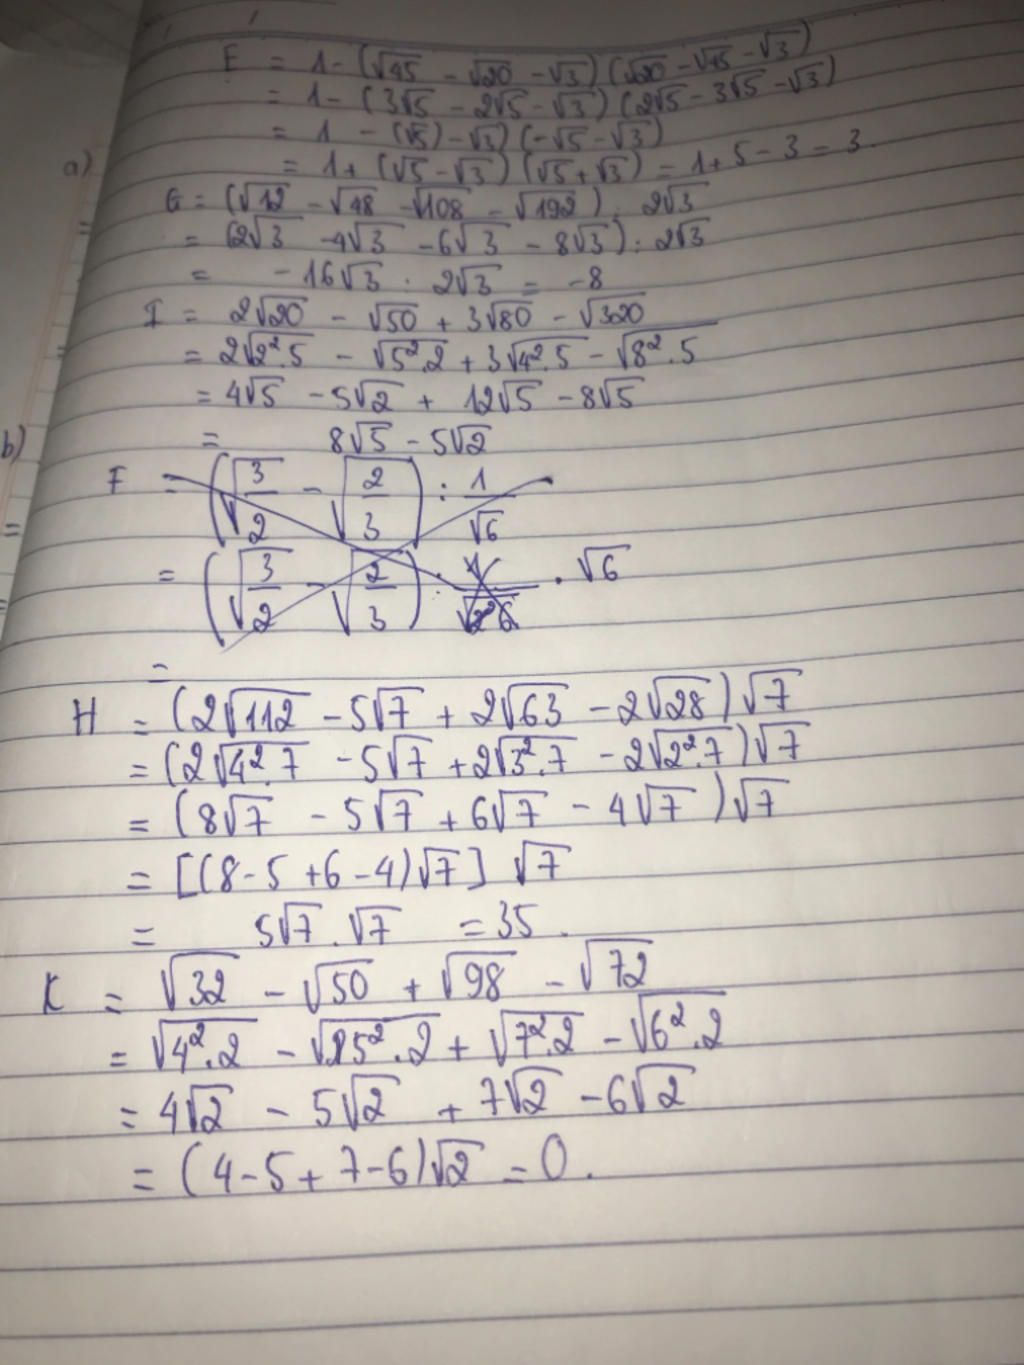 E = 1 - (√45 - √20 - √3) (√20 - √45 - √3)
= 1 - (3√5 - 2√5 - √3) (2√5 - 3√5 - √3)
= 1 - (√5) - √3) (-√5 - √3)
a)
= 1 + (√5 - √3) (√5 + √3) = 1 + 5 - 3 = 3.
G = (√12 - √48 - √108 - √192) : 2√3
= (2√3 - 4√3 - 6√3 - 8√3) : 2√3
= -16√3 : 2√3 = -8
I = 2√20 - √50 + 3√80 - √320
= 2√2².5 - √5².2 + 3√4².5 - √8².5
= 4√5 - 5√2 + 12√5 - 8√5
b)
= 8√5 - 5√2
F = (√3/2 - √2/3) : 1/√6
= (√3/2 - √2/3) . √6
=
H = (2√112 - 5√7 + 2√63 - 2√28) √7
= (2√4².7 - 5√7 + 2√3².7 - 2√2².7) √7
= (8√7 - 5√7 + 6√7 - 4√7) √7
= [(8 - 5 + 6 - 4)√7] √7
= 5√7 . √7 = 35.
K = √32 - √50 + √98 - √72
= √4².2 - √25².2 + √7².2 - √6².2
= 4√2 - 5√2 + 7√2 - 6√2
= (4 - 5 + 7 - 6)√2 = 0.